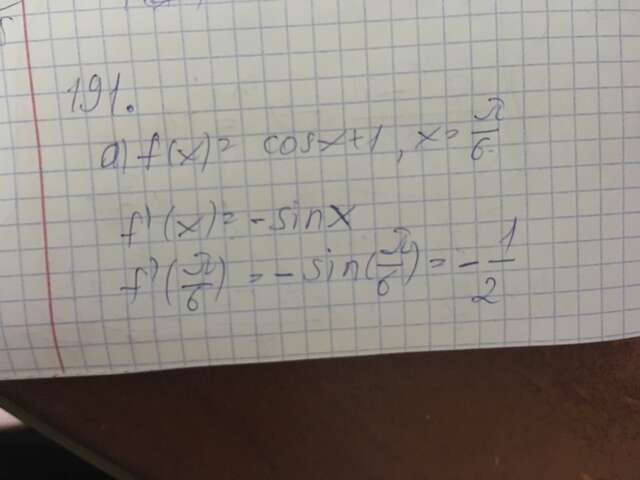 191.
a) f(x) = cosx+1, x = π/6
f'(x) = -sinx
f'(π/6) = -sin(π/6) = -1/2